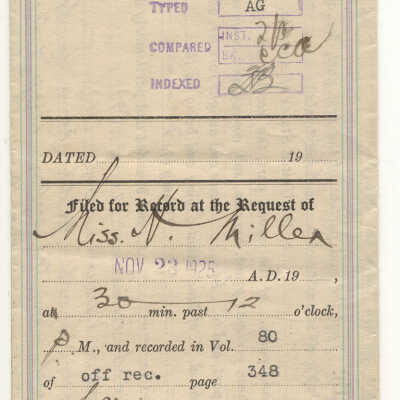 TYPED AG
COMPARED INST.
BK.
INDEXED
DATED 19
Filed for Record at the Request of
Miss. N. Miller
NOV 23 1925 A.D. 19 ,
at 30 min. past 12 o'clock,
P M., and recorded in Vol. 80
of off rec. page 348